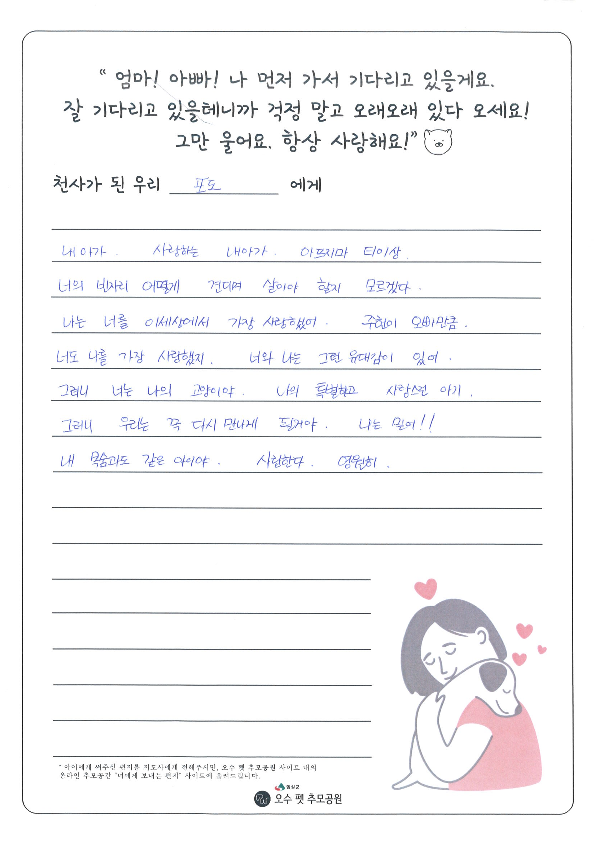 “ 엄마! 아빠! 나 먼저 가서 기다리고 있을게요.
잘 기다리고 있을테니까 걱정 말고 오래오래 있다 오세요!
그만 울어요. 항상 사랑해요!”
천사가 된 우리 포도 에게
내 아가. 사랑하는 내아가. 아프지마 더이상.
너의 빈자리 어떻게 견디며 살아야 할지 모르겠다.
나는 너를 이세상에서 가장 사랑했어. 오빠만큼.
너도 나를 가장 사랑했지. 너와 나는 그런 유대감이 있어.
그러니 너는 나의 고양이야. 나의 특별하고 사랑스런 아기.
그러니 우리는 꼭 다시 만나게 될거야. 나는 믿어!!
내 목숨과도 같은 아이야. 사랑한다. 영원히.
* 아이에게 써주신 편지를 지도사에게 전해주시면, 오수 펫 추모공원 사이트 내의
온라인 추모공간 "너에게 보내는 편지" 사이트에 올려드립니다.
임실군
오수 펫 추모공원